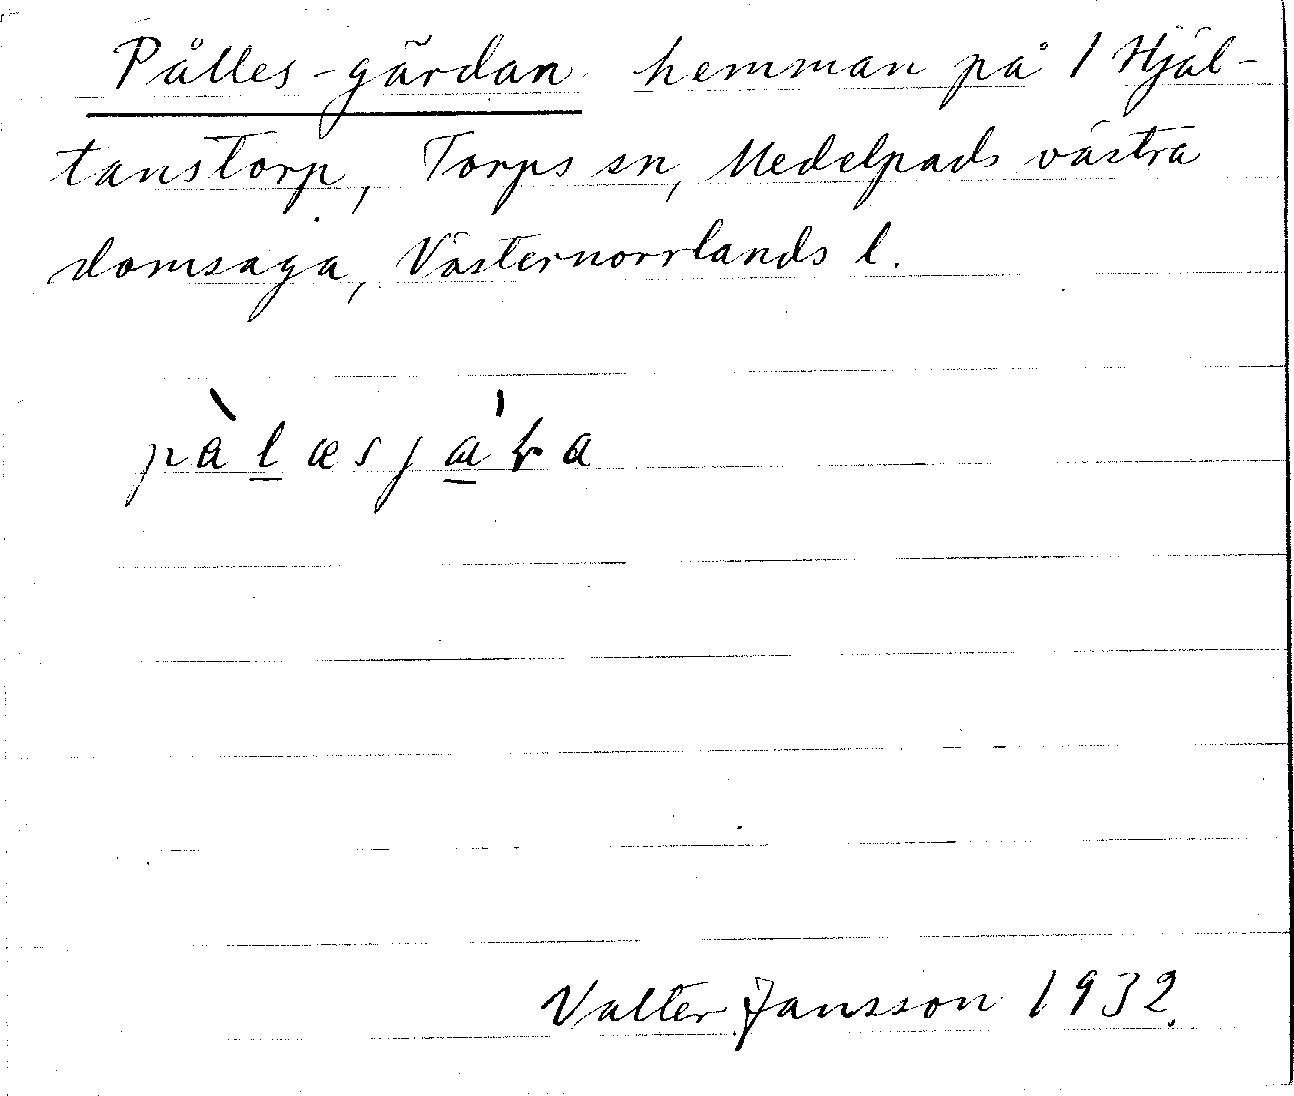 Pålles-gärdan hemman på 1 Hjäl-
tanstorp, Torps sn, Medelpads västra
domsaga, Västernorrlands l.
Valter Jansson 1932.